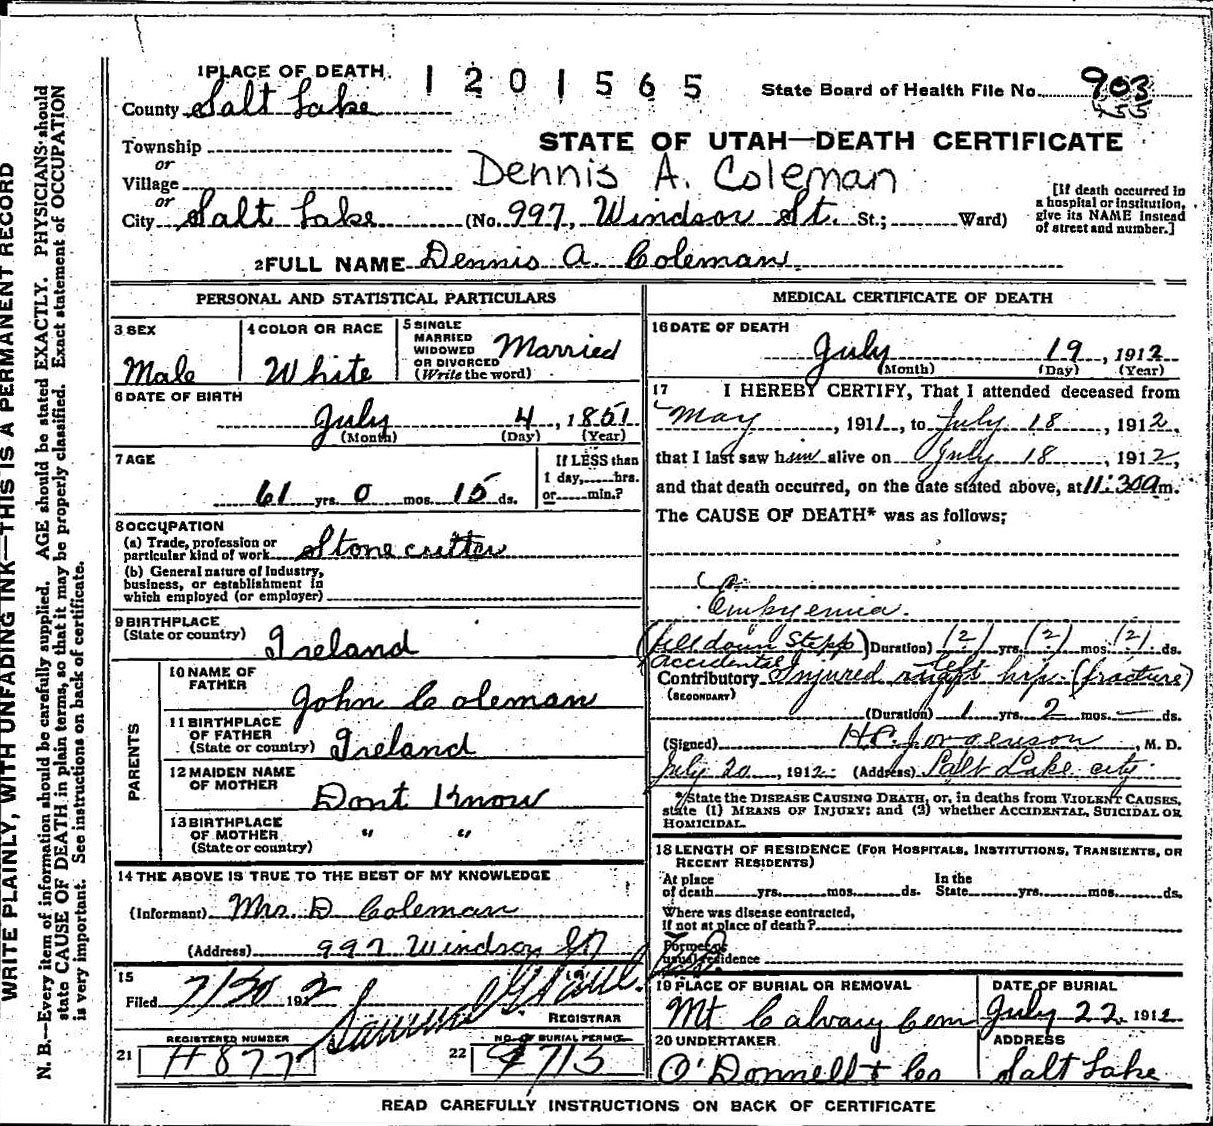 WRITE PLAINLY, WITH UNFADING INK—THIS IS A PERMANENT RECORD
N. B.—Every item of information should be carefully supplied. AGE should be stated EXACTLY. PHYSICIANS should
state CAUSE OF DEATH in plain terms, so that it may be properly classified. Exact statement of OCCUPATION
is very important. See instructions on back of certificate.
1 PLACE OF DEATH. 1201565 State Board of Health File No. 903
County Salt Lake
STATE OF UTAH—DEATH CERTIFICATE
Township
or
Village
or
Dennis A. Coleman
City Salt Lake (No. 997, Windsor St. St.; Ward)
[If death occurred in
a hospital or institution,
give its NAME instead
of street and number.]
2 FULL NAME Dennis A. Coleman
PERSONAL AND STATISTICAL PARTICULARS
3 SEX
Male
4 COLOR OR RACE
White
5 SINGLE
MARRIED
WIDOWED
OR DIVORCED
(Write the word)
Married
6 DATE OF BIRTH
July 4, 1851
(Month) (Day) (Year)
7 AGE
61 yrs. 0 mos. 15 ds.
If LESS than
1 day, hrs.
or min.?
8 OCCUPATION
(a) Trade, profession or
particular kind of work Stone cutter
(b) General nature of Industry,
business, or establishment in
which employed (or employer)
9 BIRTHPLACE
(State or country) Ireland
PARENTS
10 NAME OF
FATHER
John Coleman
11 BIRTHPLACE
OF FATHER
(State or country) Ireland
12 MAIDEN NAME
OF MOTHER
Dont Know
13 BIRTHPLACE
OF MOTHER " "
(State or country)
14 THE ABOVE IS TRUE TO THE BEST OF MY KNOWLEDGE
(Informant) Mrs. D Coleman
(Address) 997 Windsor St
15
Filed 7/20 1912
REGISTRAR
REGISTERED NUMBER
21 H877
NO. OF BURIAL PERMIT
22 9713
MEDICAL CERTIFICATE OF DEATH
16 DATE OF DEATH
July 19, 1912
(Month) (Day) (Year)
17 I HEREBY CERTIFY, That I attended deceased from
May, 1911, to July 18, 1912,
that I last saw him alive on July 18, 1912,
and that death occurred, on the date stated above, at 11:30 a m.
The CAUSE OF DEATH* was as follows:
Empyemia.
(fell down Stepp) (Duration) (2) yrs. (2) mos. (2) ds.
accidental
Contributory Injured left hip (fracture)
(SECONDARY)
(Duration) 1 yrs. 2 mos. — ds.
(Signed) H.P. Jorgenson, M. D.
July 20, 1912 (Address) Salt Lake city.
*State the DISEASE CAUSING DEATH, or, in deaths from VIOLENT CAUSES,
state (1) MEANS OF INJURY; and (2) whether ACCIDENTAL, SUICIDAL OR
HOMICIDAL.
18 LENGTH OF RESIDENCE (FOR HOSPITALS, INSTITUTIONS, TRANSIENTS, OR
RECENT RESIDENTS)
At place
of death yrs. mos. ds.
In the
State yrs. mos. ds.
Where was disease contracted,
if not at place of death?
Former or
usual residence
19 PLACE OF BURIAL OR REMOVAL
Mt Calvary Cem
DATE OF BURIAL
July 22, 1912
20 UNDERTAKER
O'Donnell & Co
ADDRESS
Salt Lake
READ CAREFULLY INSTRUCTIONS ON BACK OF CERTIFICATE